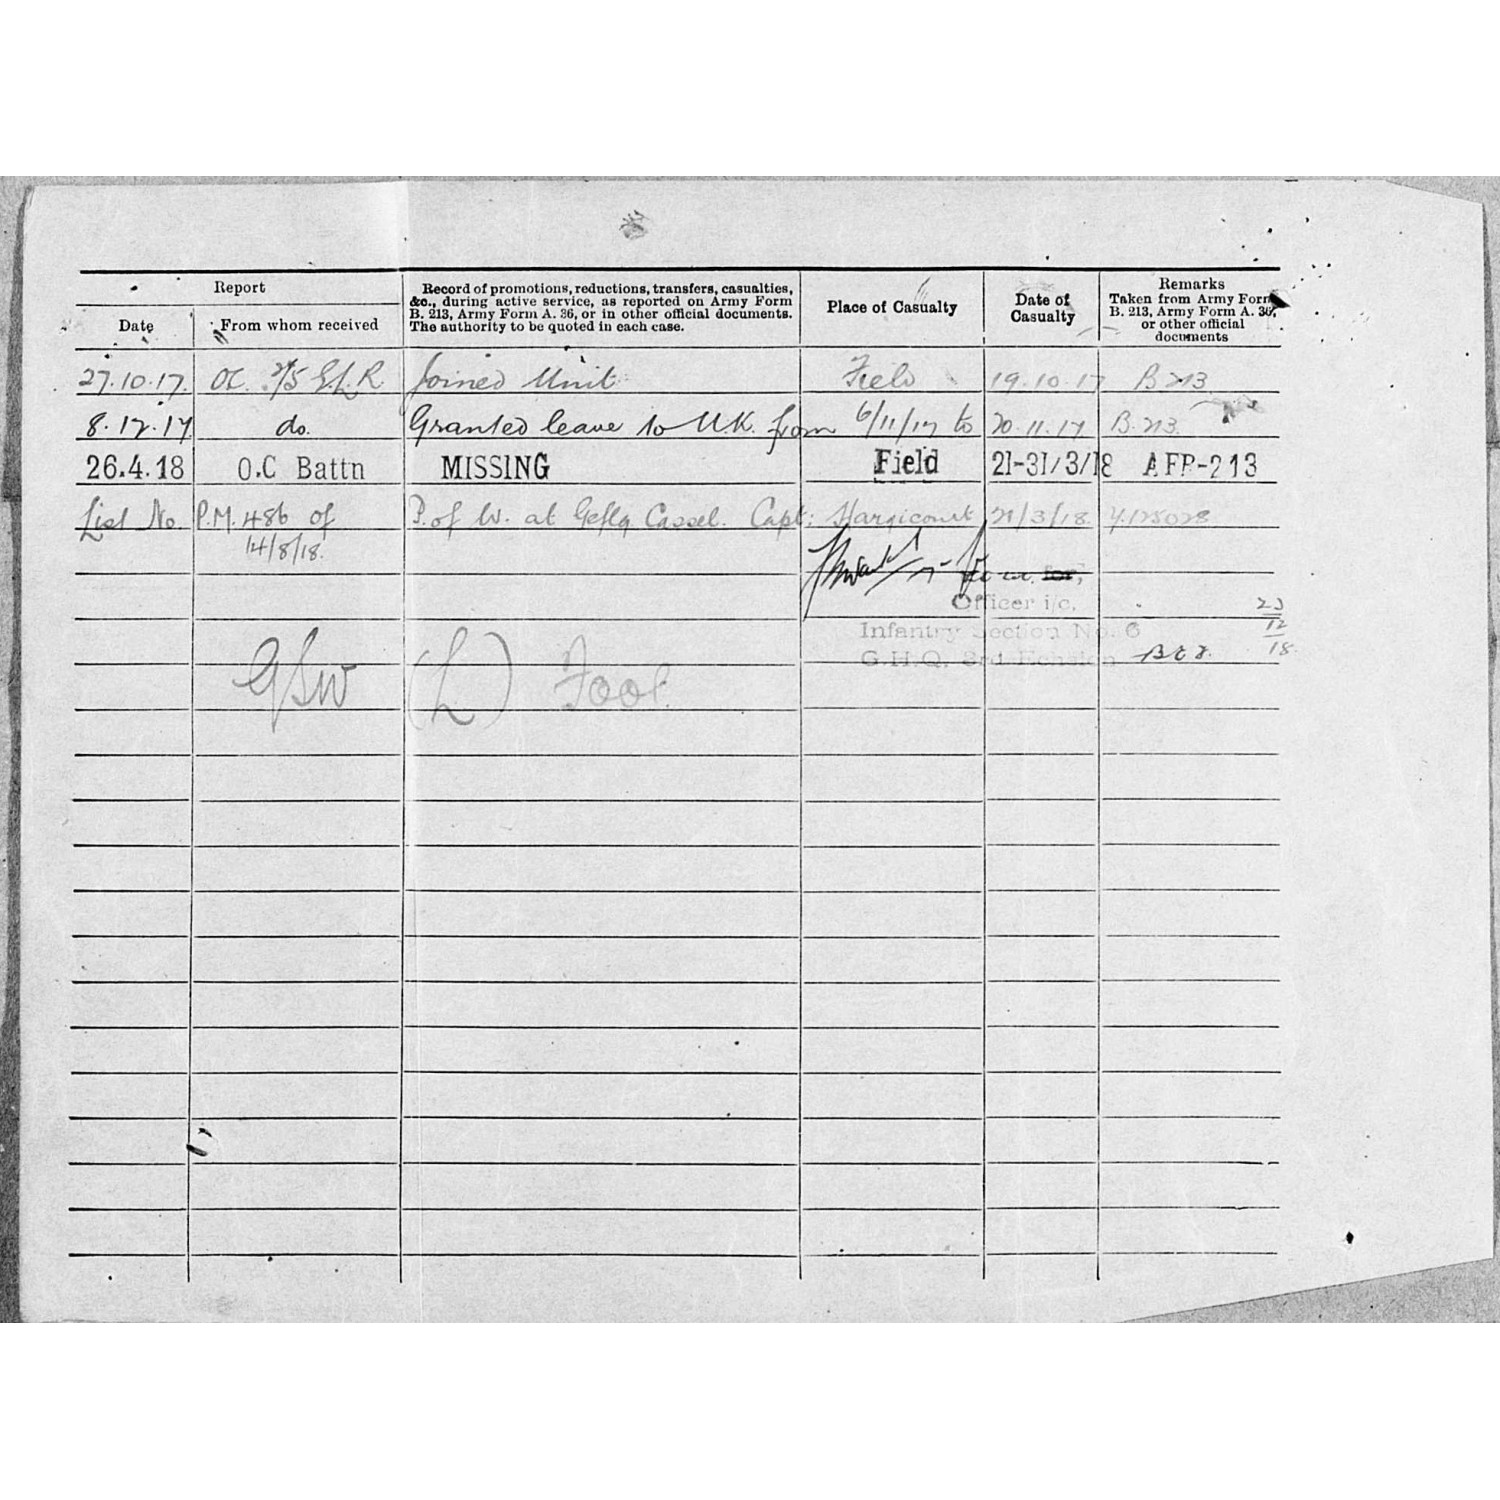 Report
Date
From whom received
Record of promotions, reductions, transfers, casualties,
&c., during active service, as reported on Army Form
B. 213, Army Form A. 36, or in other official documents.
The authority to be quoted in each case.
Place of Casualty
Date of
Casualty
Remarks
Taken from Army Form
B. 213, Army Form A. 36,
or other official
documents
27.10.17. OC. 2/5 E.L.R Joined Unit Field 19.10.17 B 213
8.12.17 do. Granted leave to U.K. from 6/11/17 to 20.11.17 B.213.
26.4.18 O.C Battn MISSING Field 21-31/3/18 AFB-213
List No. P.M. 486 of P. of W. at Gefla Cassel. Capt: Hargicourt 21/3/18. Y.125028
14/8/18.
for,
Officer i/c,
Infantry Section No. 6
G.H.Q. 3rd Echelon
23
12
18.
GSW (L) Foot.